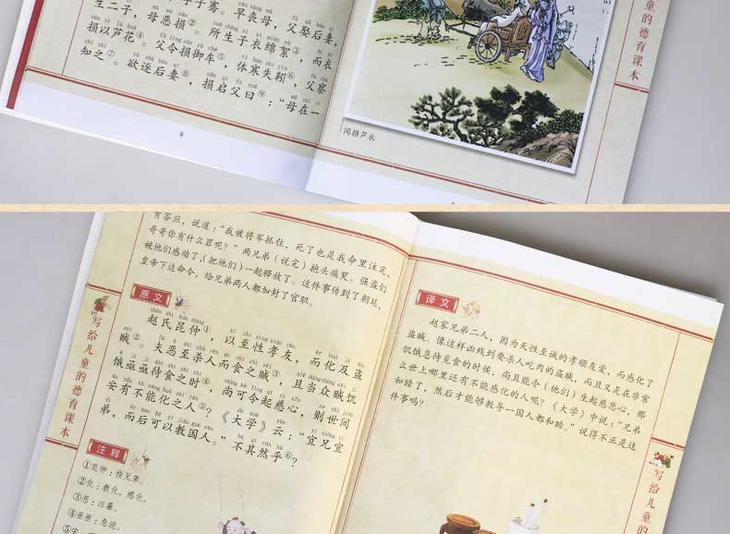 子骞。早丧母，父娶后妻，
生二子，母恶损②。所生子衣绵絮③，而衣
损以芦花④。父令损御车⑤，体寒失靷⑥，父察
知之⑦。欲逐后妻⑧，损启父曰⑨：“母在一
8
闵损芦衣
的德育课本
有答应，说道：“我被将军抓住，死了也是我命里注定，
哥哥你有什么罪呢？”两兄弟（说完）抱头痛哭。强盗们
被他们感动了，（把他们）一起释放了。这件事传到了朝廷，
皇帝下达命令，给兄弟两人都加封了官职。
原文
赵氏昆仲①，以至性孝友，而化及盗
贼②。夫恶至杀人而食之贼③，且当众贼饥
饿亟亟待食之时④，尚可令起慈心，则世间
安有不能化之人⑤？《大学》云：“宜兄宜
弟，而后可以教国人。”不其然乎⑥？
注释
①昆仲：指兄弟。
②化：教化，感化。
③恶：凶暴。
④亟亟：急迫。
写给儿童的德育课本
译文
赵家兄弟二人，因为天性至诚的孝顺友爱，而感化了
盗贼。像这样凶残到要杀人吃肉的盗贼，而且又是在非常
饥饿急待觅食的时候，尚且能令（他们）生起慈悲心，那
么世上哪里还有不能感化的人呢？《大学》中说：“兄弟
和睦了，然后才能够教导一国人都和睦。”说得不正是这
件事吗？
写给儿童的